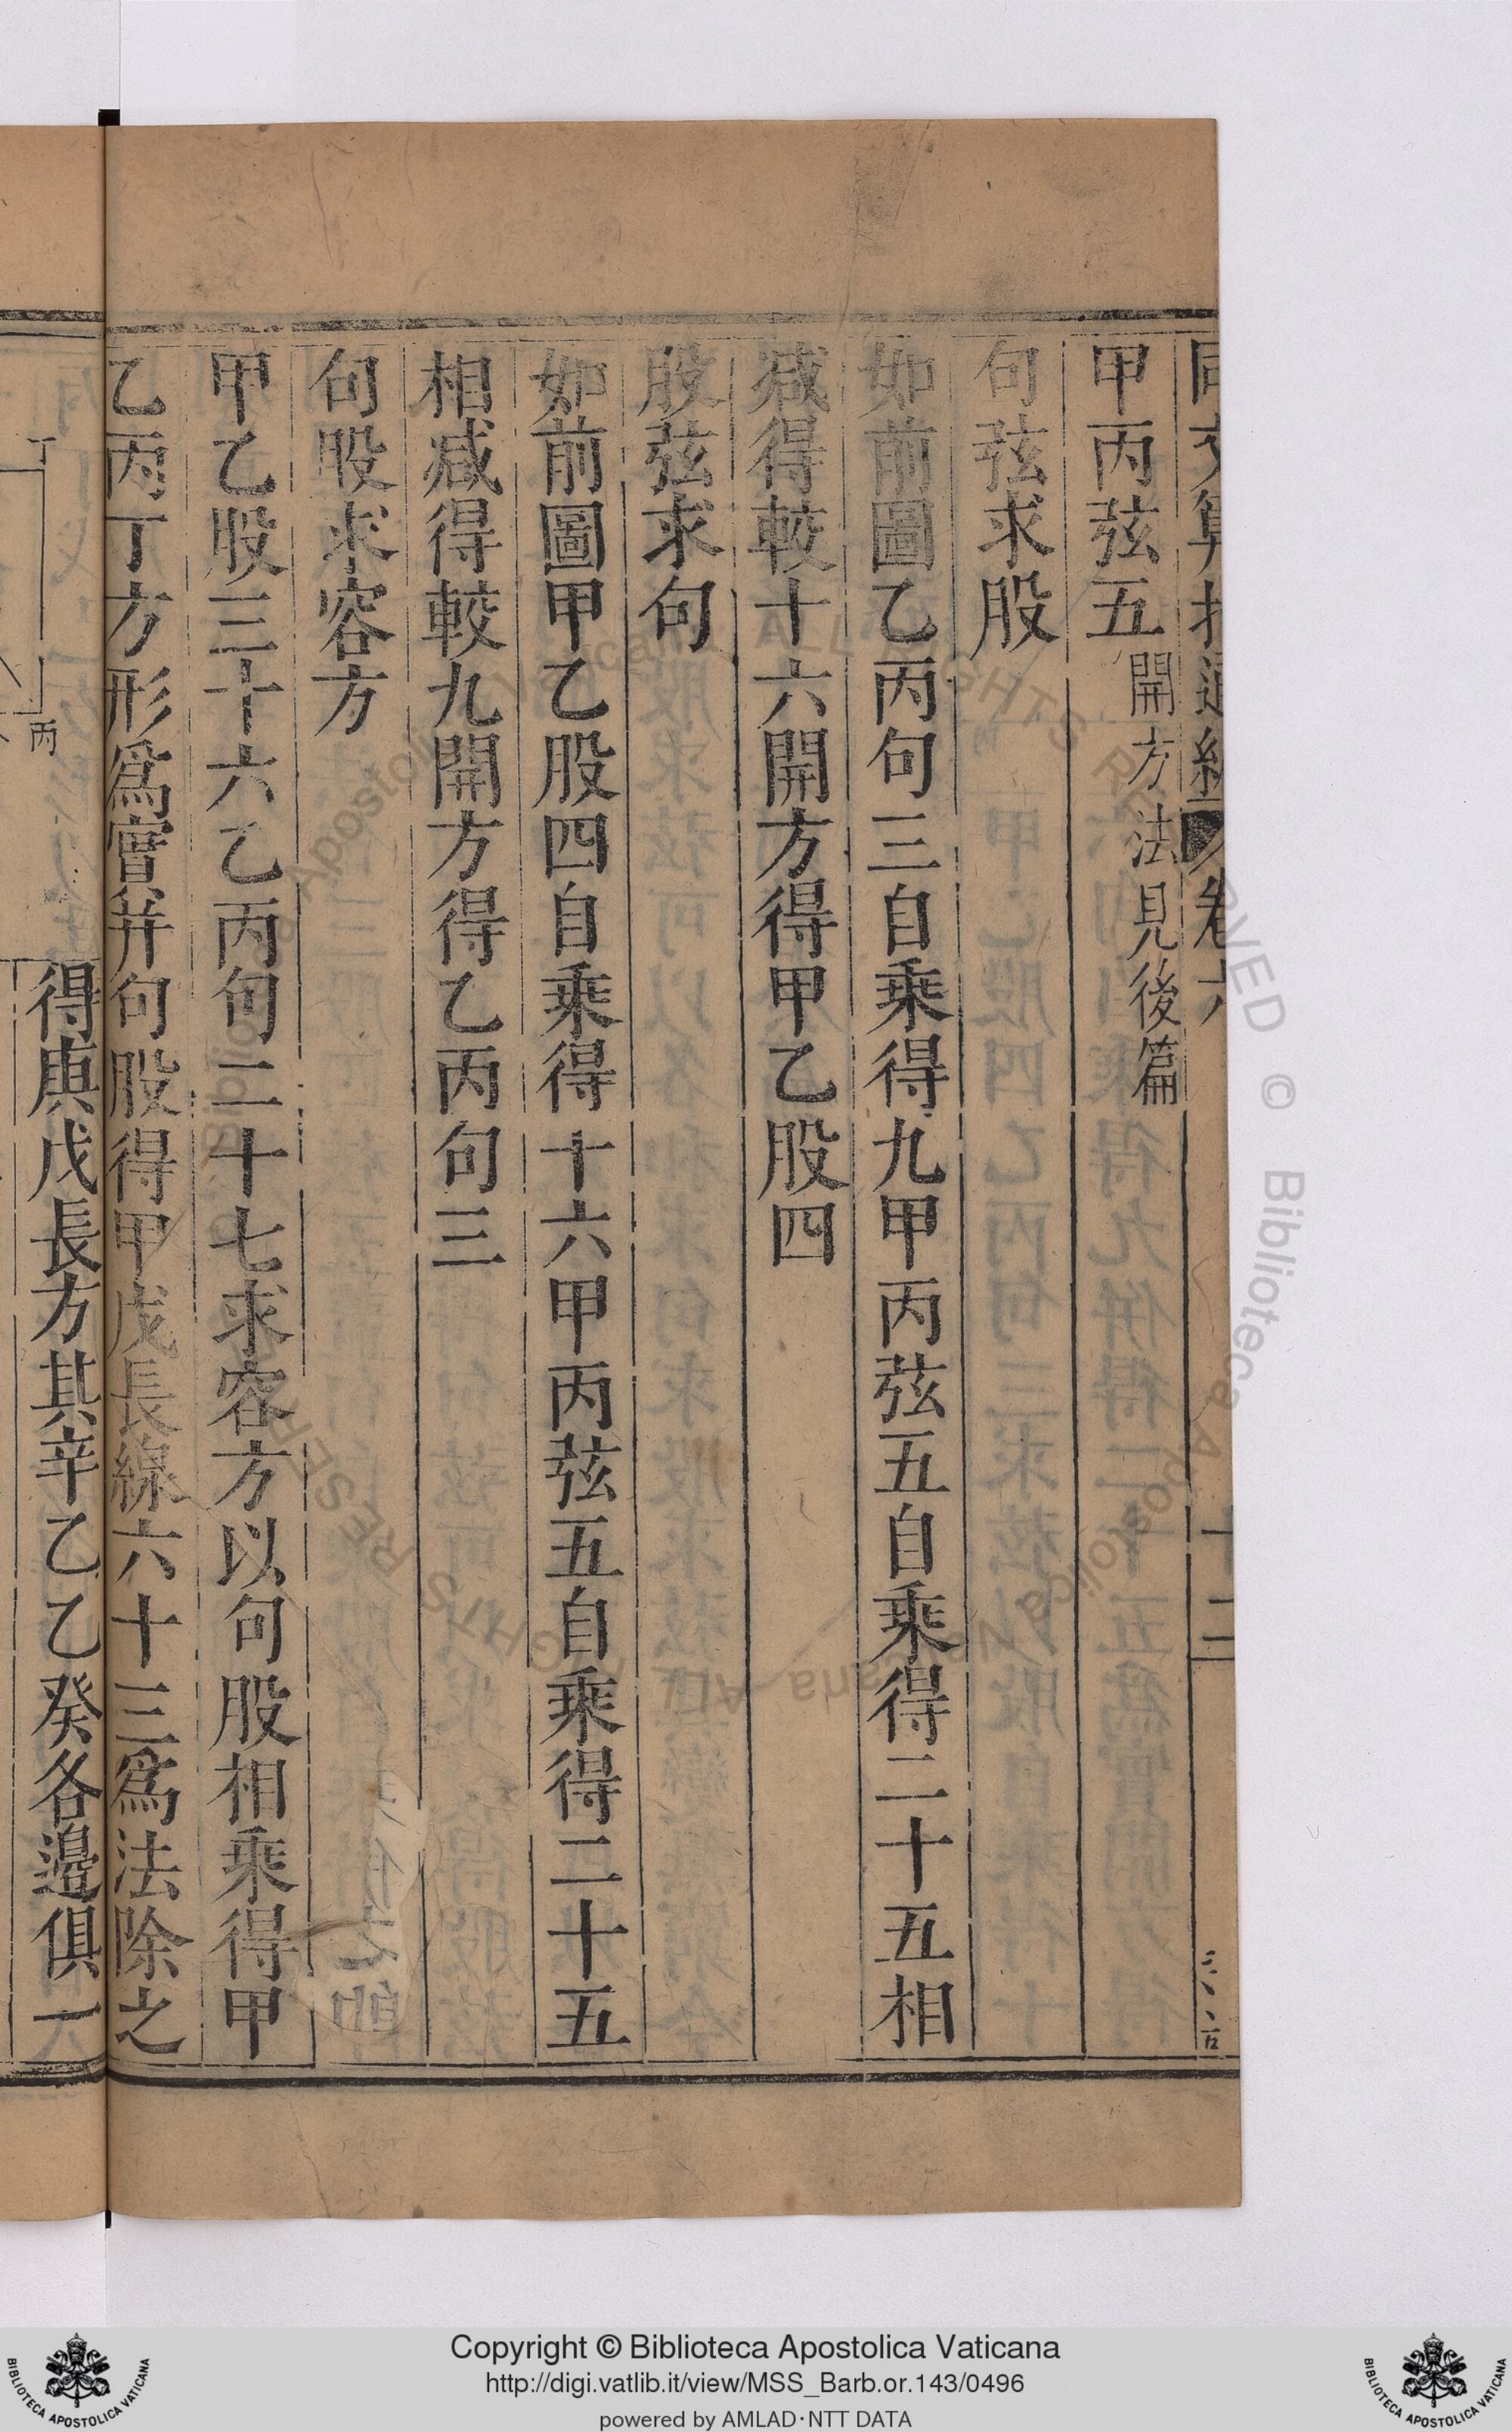 甲丙弦五開方法見後篇
句弦求股
如前圖乙丙句三自乘得九甲丙弦五自乘得二十五相
减得較十六開方得甲乙股四
股弦求句
如前圖甲乙股四自乘得十六甲丙弦五自乘得二十五
相减得較九開方得乙丙句三
句股求容方
甲乙股三十六乙丙句二十七求容方以句股相乘得甲
乙丙丁方形爲實并句股得甲戊長線六十三爲法除之
得庚戊長方其辛乙乙癸各邊俱一
丁
丙
Copyright © Biblioteca Apostolica Vaticana
http://digi.vatlib.it/view/MSS_Barb.or.143/0496
powered by AMLAD·NTT DATA
BIBLIOTECA APOSTOLICA VATICANA
BIBLIOTECA APOSTOLICA VATICANA